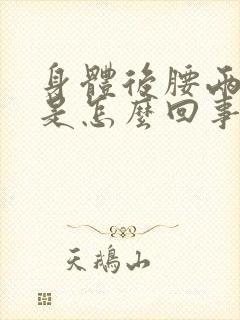 身體後腰兩
是怎麼回事
天鵝山